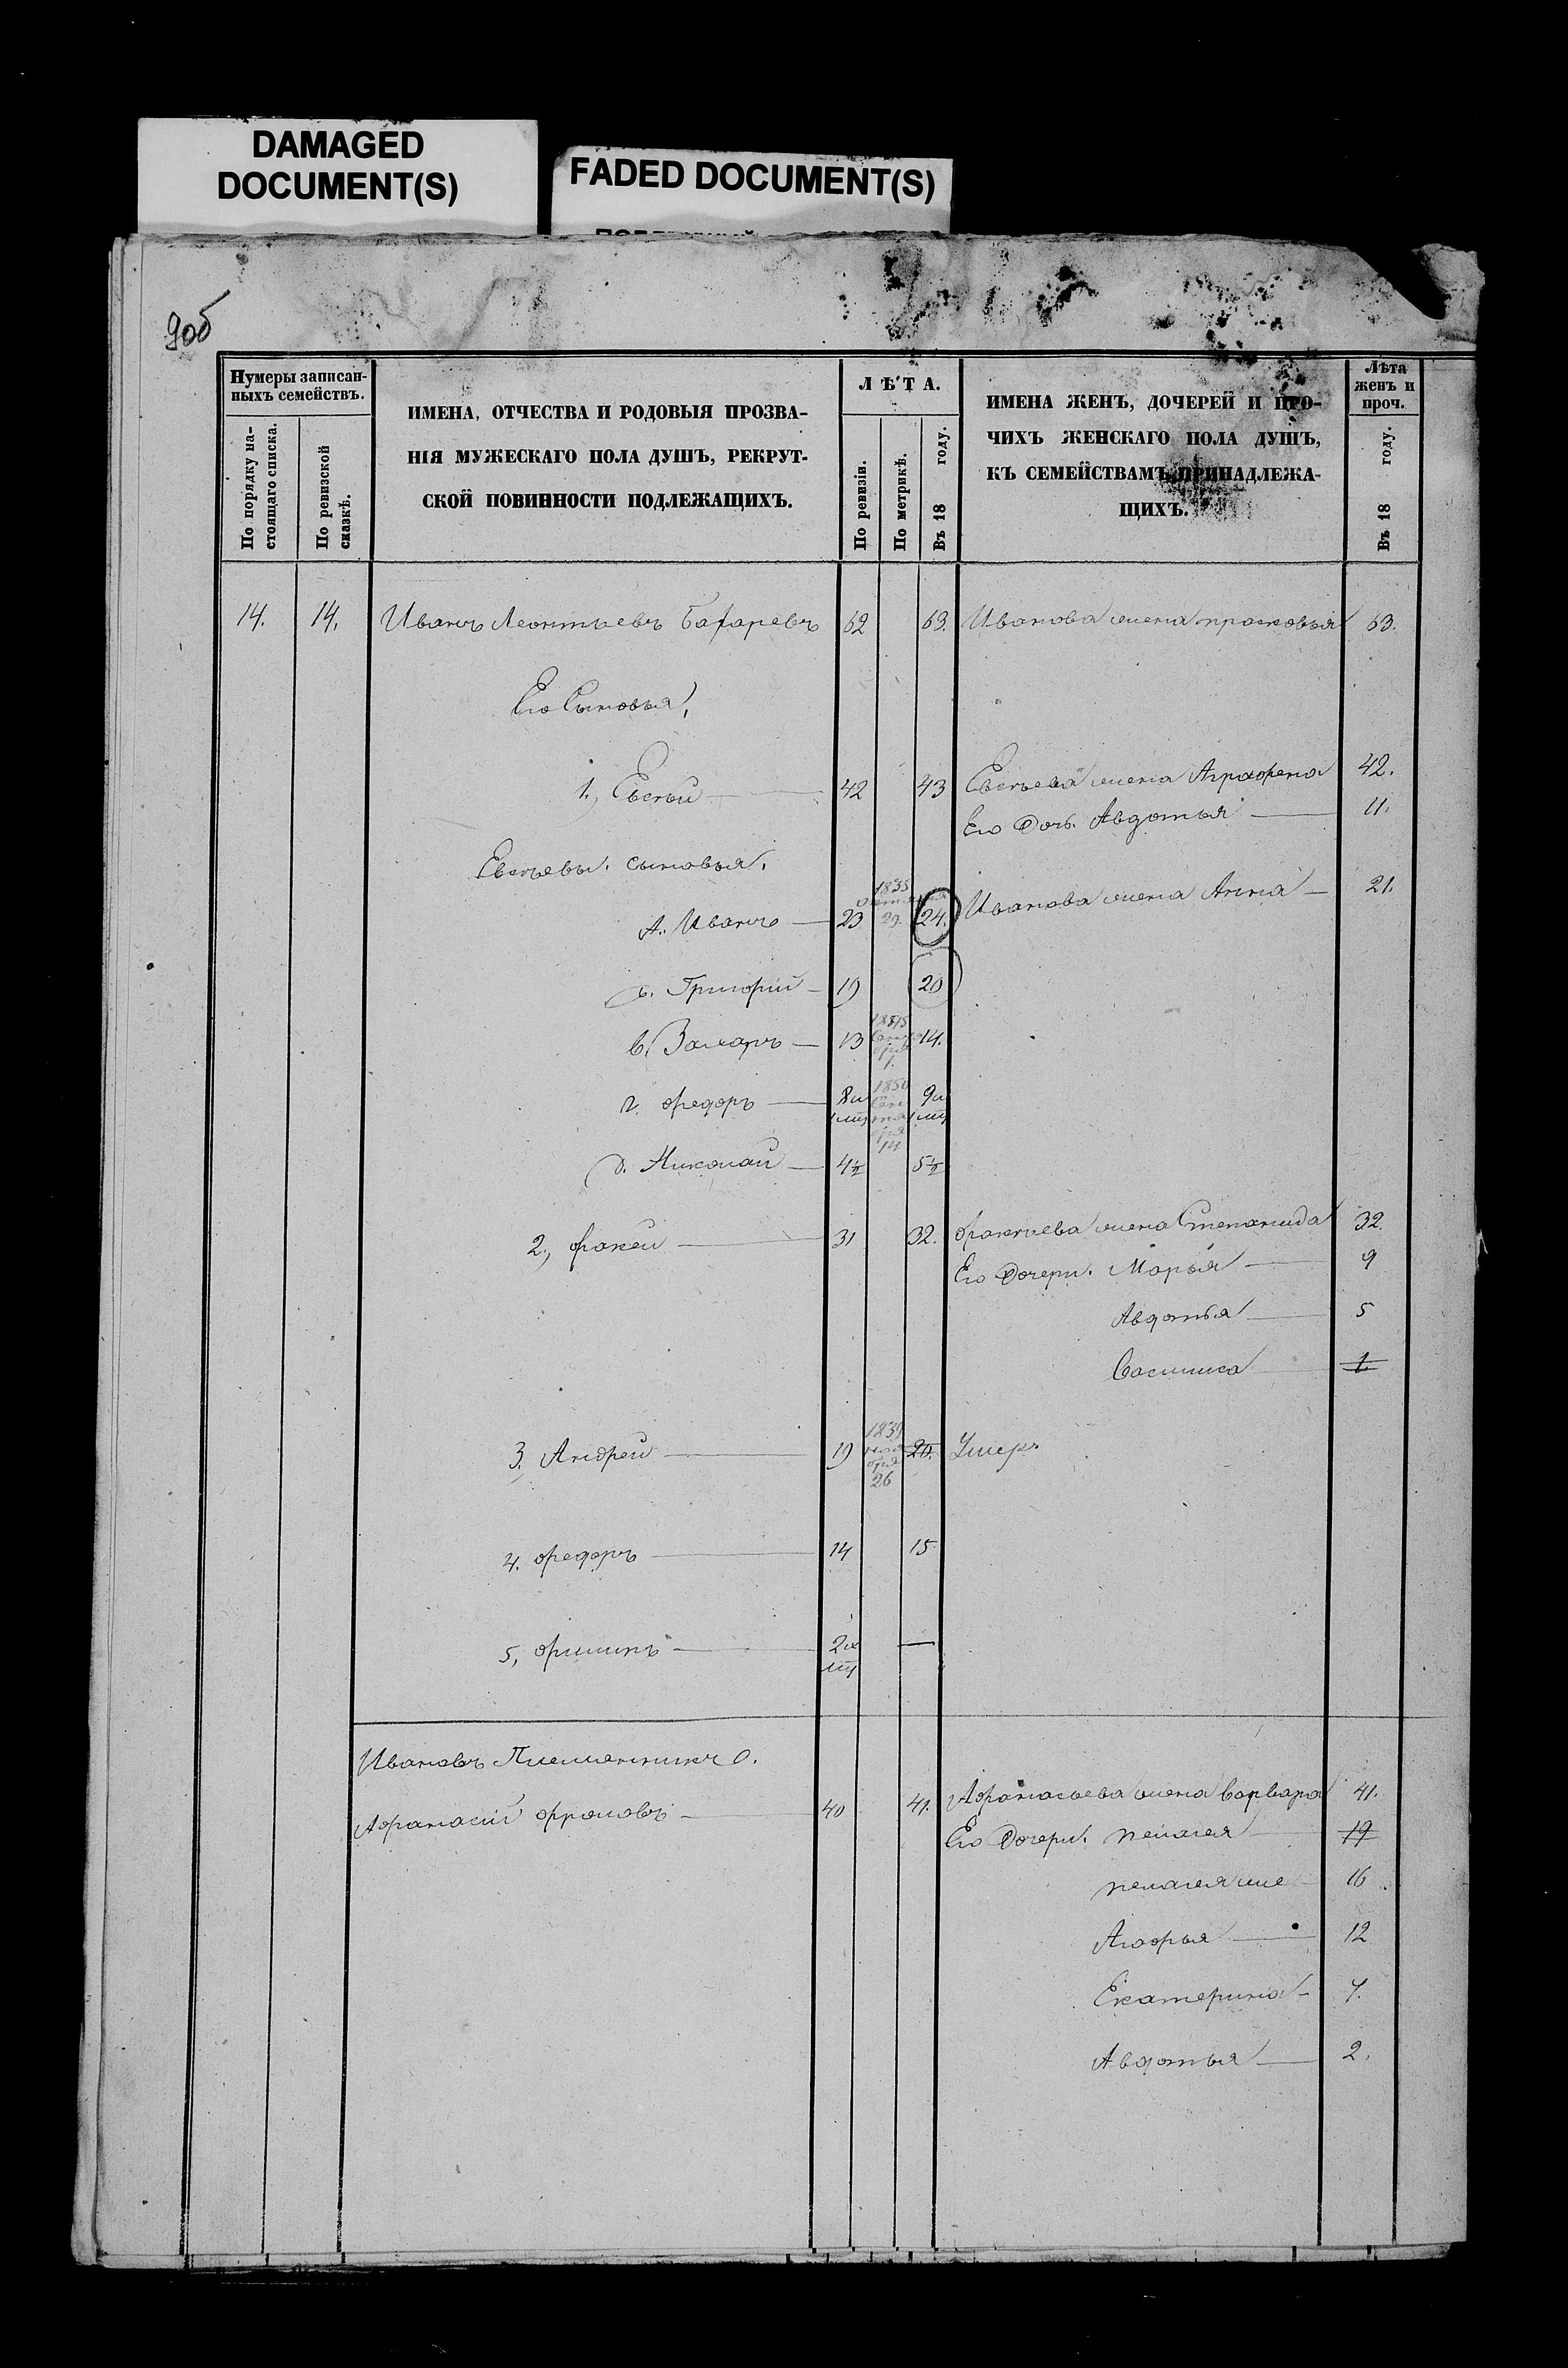 DAMAGED
DOCUMENT(S)
FADED DOCUMENT(S)
90б
Нумеры записан-
ныхъ семействъ.
По порядку на-
стоящаго списка.
По ревизской
сказкѣ.
ИМЕНА, ОТЧЕСТВА И РОДОВЫЯ ПРОЗВА-
НІЯ МУЖЕСКАГО ПОЛА ДУШЪ, РЕКРУТ-
СКОЙ ПОВИННОСТИ ПОДЛЕЖАЩИХЪ.
ЛѢТА.
По ревизіи.
По метрикѣ.
Въ 18 году.
ИМЕНА ЖЕНЪ, ДОЧЕРЕЙ И ПРО-
ЧИХЪ ЖЕНСКАГО ПОЛА ДУШЪ,
КЪ СЕМЕЙСТВАМЪ ПРИНАДЛЕЖА-
ЩИХЪ.
Лѣта
женъ и
проч.
Въ 18 году.
14. 14. Иванъ Леонтьевъ 62 63. Иванова жена прасковья 63.
Его Сыновья,
1, Евсѣй 42 43 Евсѣева жена Аграфена 42.
Его Дочь. Авдотья 11.
Евсѣевы. сыновья.
1835
А. Иванъ 23 29. 24. Иванова жена Анна 21.
б. Григорій 19 20
в. Захаръ 13 1. 14.
1850
г. Федоръ 8 и 9 и
14
д. Николай 4½ 5½
2, Фокей 31 32. жена Степанида 32.
Его Дочери. Марья 9
Авдотья 5
Василиса 1.
1839
3, Андрей 19 20. Умеръ
26
4. Федоръ 14 15.
5, Филипъ 2
Ивановъ Племянникъ
Афанасій Фроловъ 40 41. Афанасьева жена Варвара 41.
Его Дочери. пелагея 19
пелагея же 16
12
Екатерина 7.
Авдотья 2.